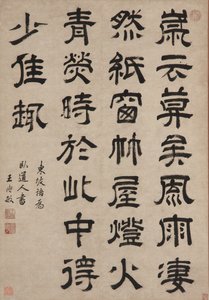 歲云莫矣風雨淒
然紙窗竹屋燈火
青熒時於此中得
少佳趣
東坡語為
道人書
王時敏